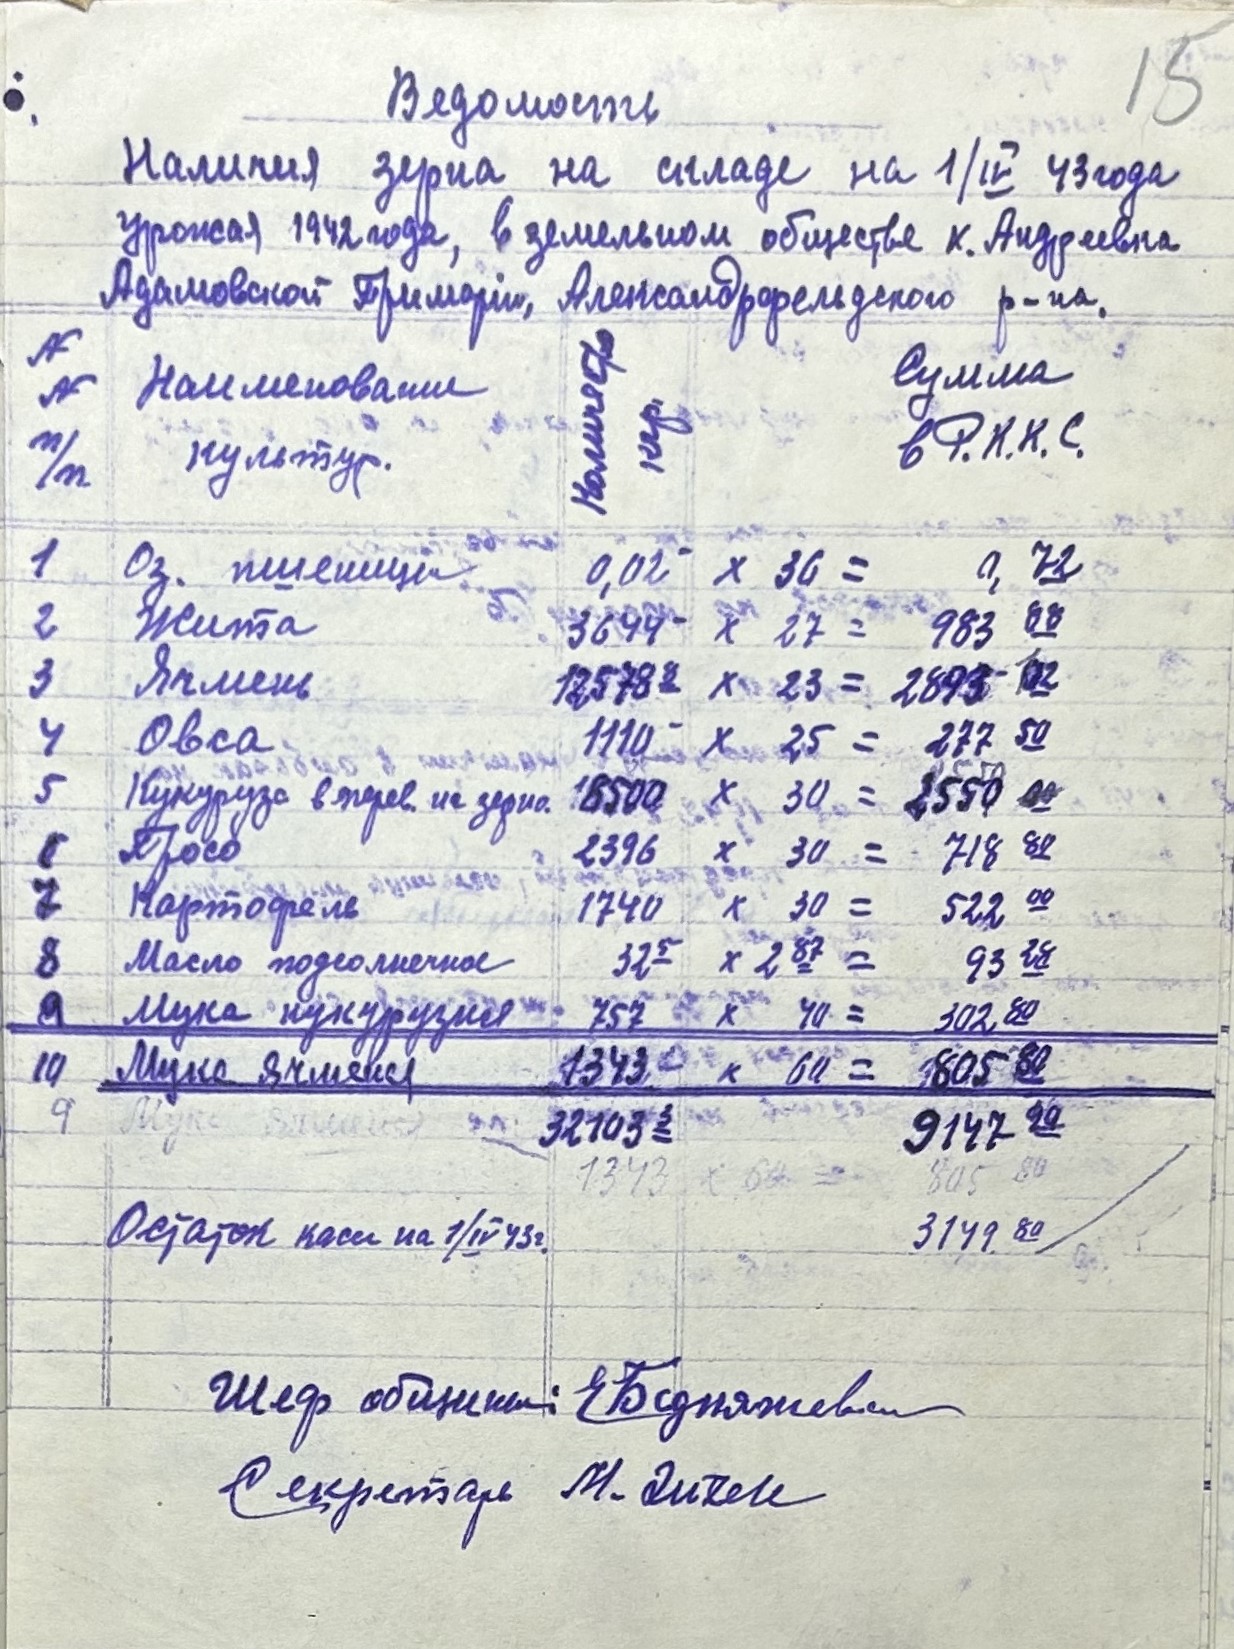 15
Ведомость
Наличия зерна на складе на 1/IV 43 года
урожая 1942 года, в земельном обществе к. Андреевка
Адамовской Примарии, Александрфельдского р-на.
№ № п/п Наименование культур. Количество кгр. Сумма в Р.К.К.С.
1 Оз. пшеница 0,02- х 36 = 0,72
2 Жита 3644- х 27 = 983 88
3 Ячмень 12578 х 23 = 2893 02
4 Овса 1110- х 25 = 277 50
5 Кукуруза в перев. на зерно 8500 х 30 = 2550 00
6 Просо 2396 х 30 = 718 80
7 Картофель 1740 х 30 = 522 00
8 Масло подсолнечное 32 5 х 2 87 = 93 28
9 Мука кукурузная 757 х 40 = 302,80
10 Мука ячменя 1343 х 60 = 805 80
9 Мука ячменя 32103 3 9147 90
1343 х 60 = 805 80
Остаток касы на 1/IV 43 г. 3149 80
Шеф общины:
Секретарь М.